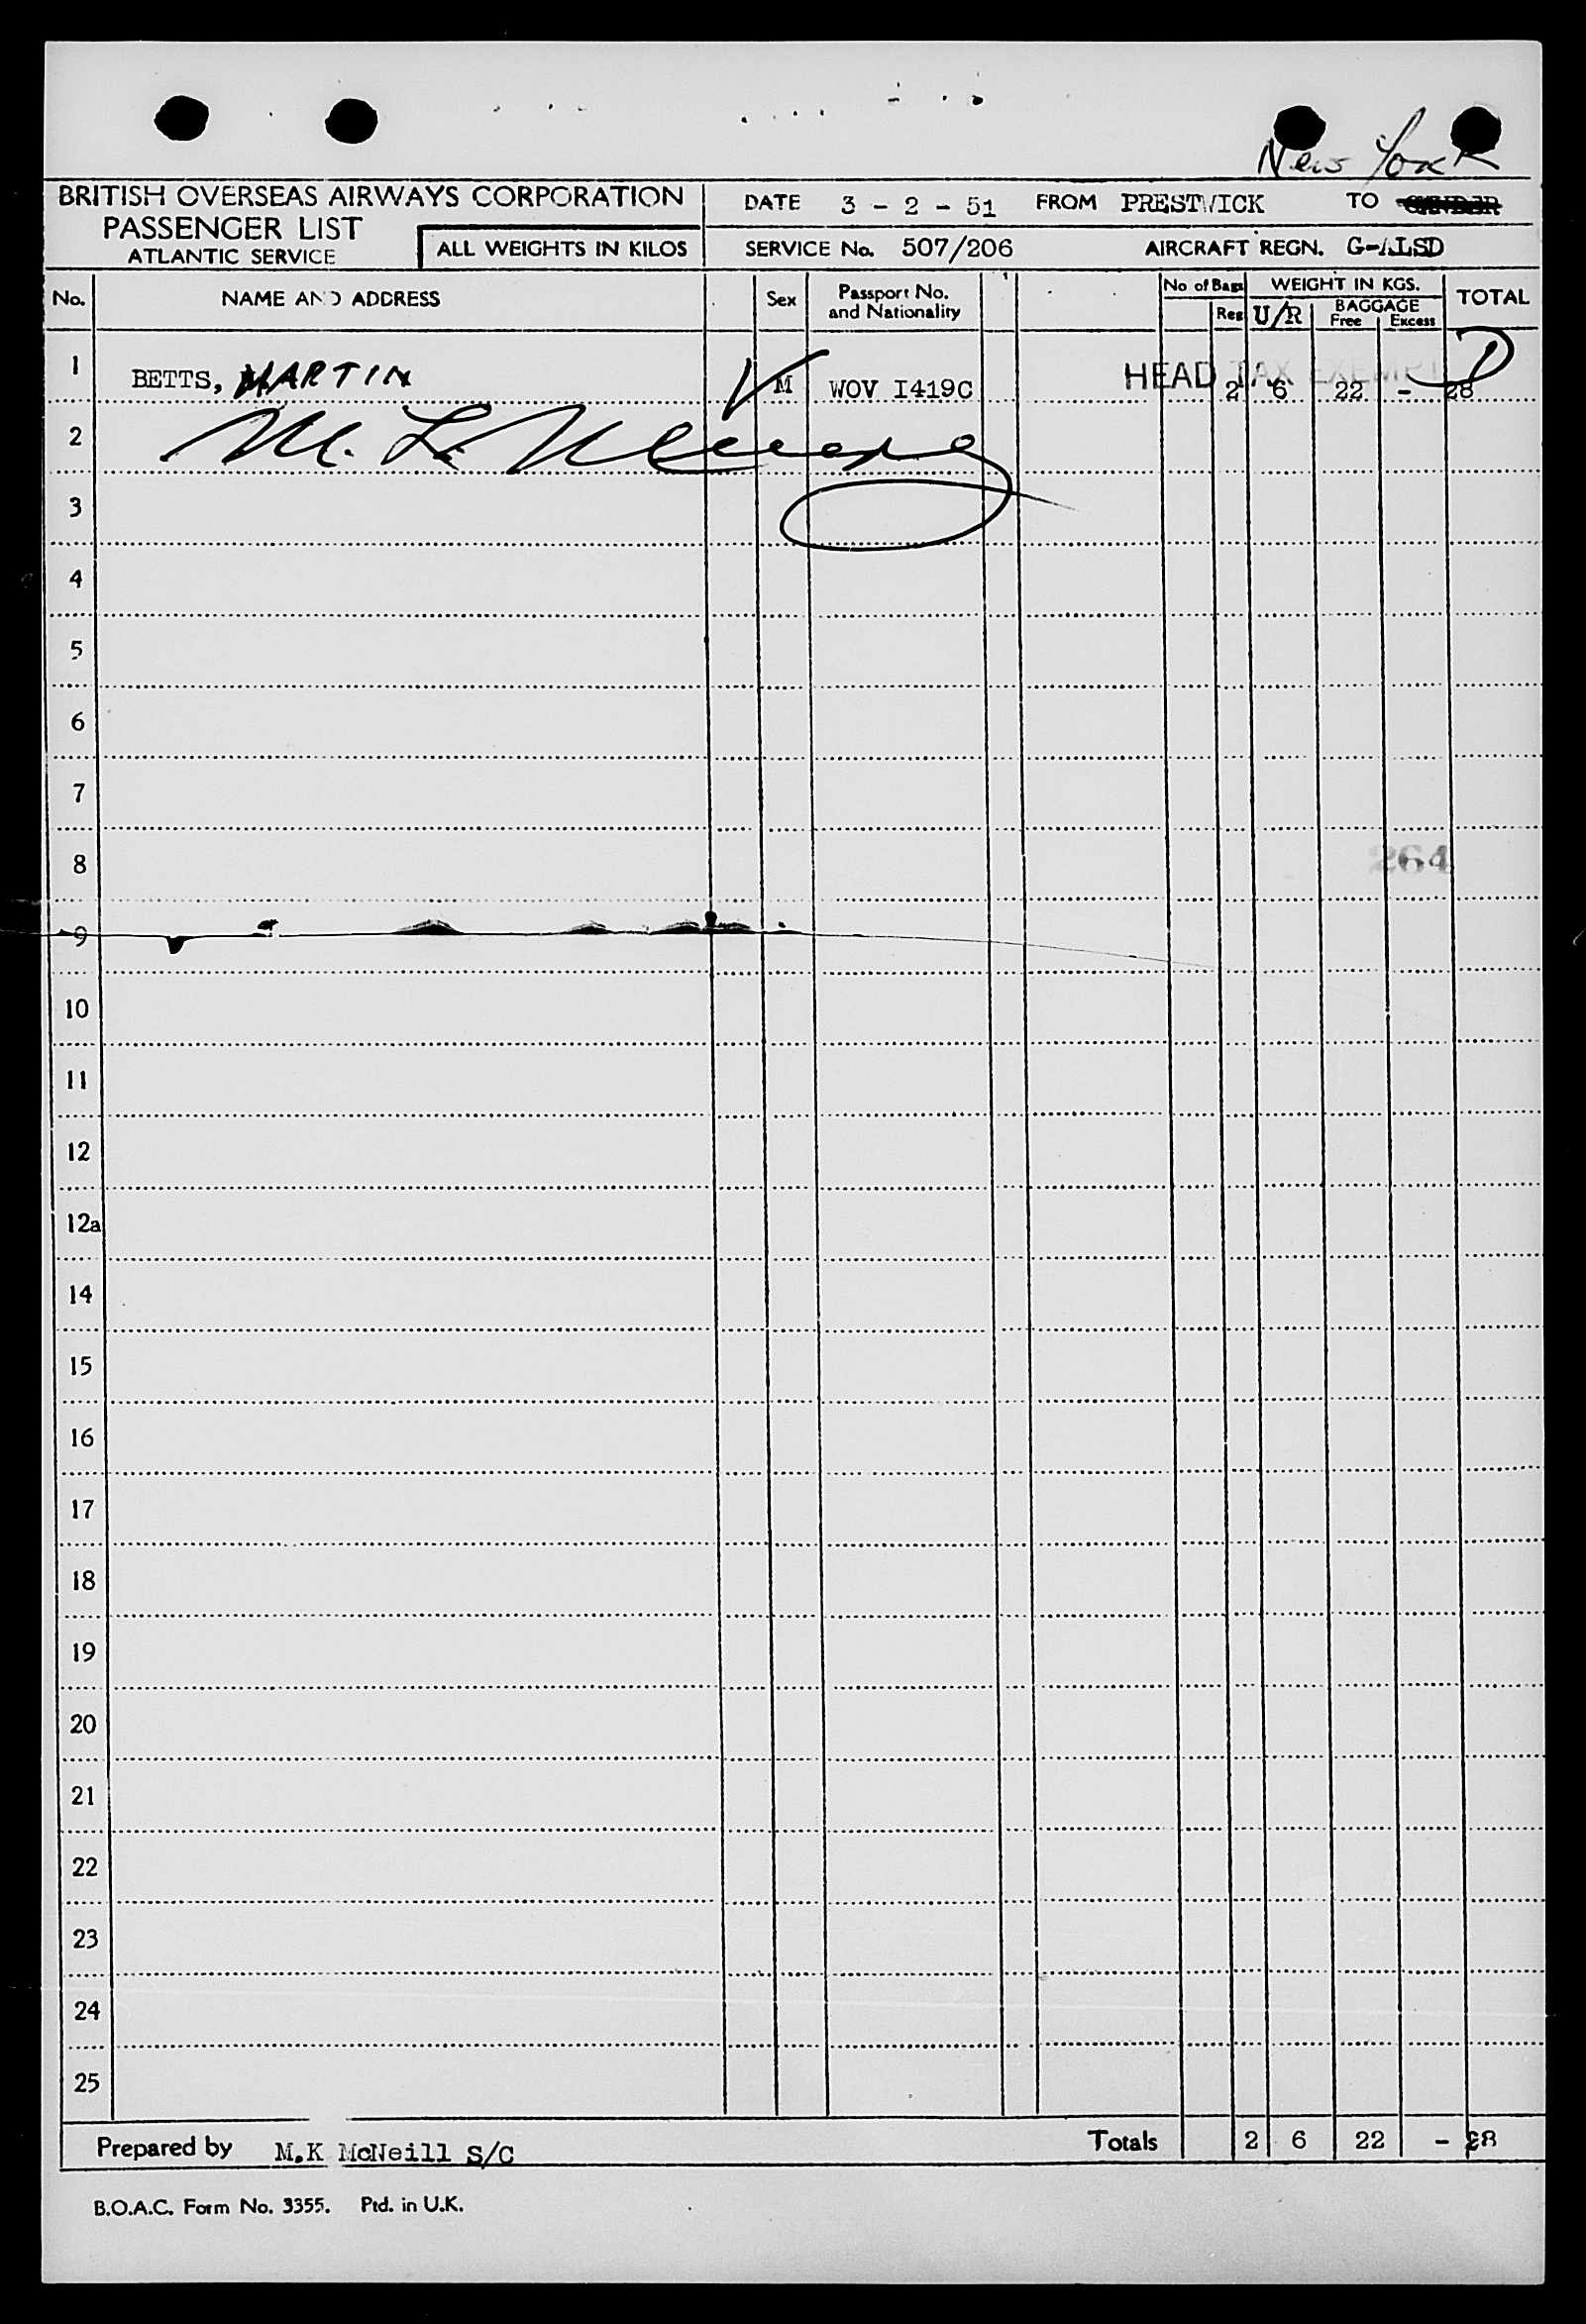 New York
BRITISH OVERSEAS AIRWAYS CORPORATION
PASSENGER LIST
ATLANTIC SERVICE
ALL WEIGHTS IN KILOS
DATE 3 - 2 - 51 FROM PRESTWICK TO GANDER
SERVICE No. 507/206 AIRCRAFT REGN. G-ALSD
No. NAME AND ADDRESS Sex Passport No. and Nationality No of Bags Reg WEIGHT IN KGS. U/R BAGGAGE Free Excess TOTAL
HEAD TAX EXEMPT D
1 BETTS, MARTIN M WOV I419C 2 6 22 - 28
2 M. L.
3
4
5
6
7
8
264
9
10
11
12
12a
14
15
16
17
18
19
20
21
22
23
24
25
Prepared by M.K McNeill S/C Totals 2 6 22 - 28
B.O.A.C. Form No. 3355. Ptd. in U.K.